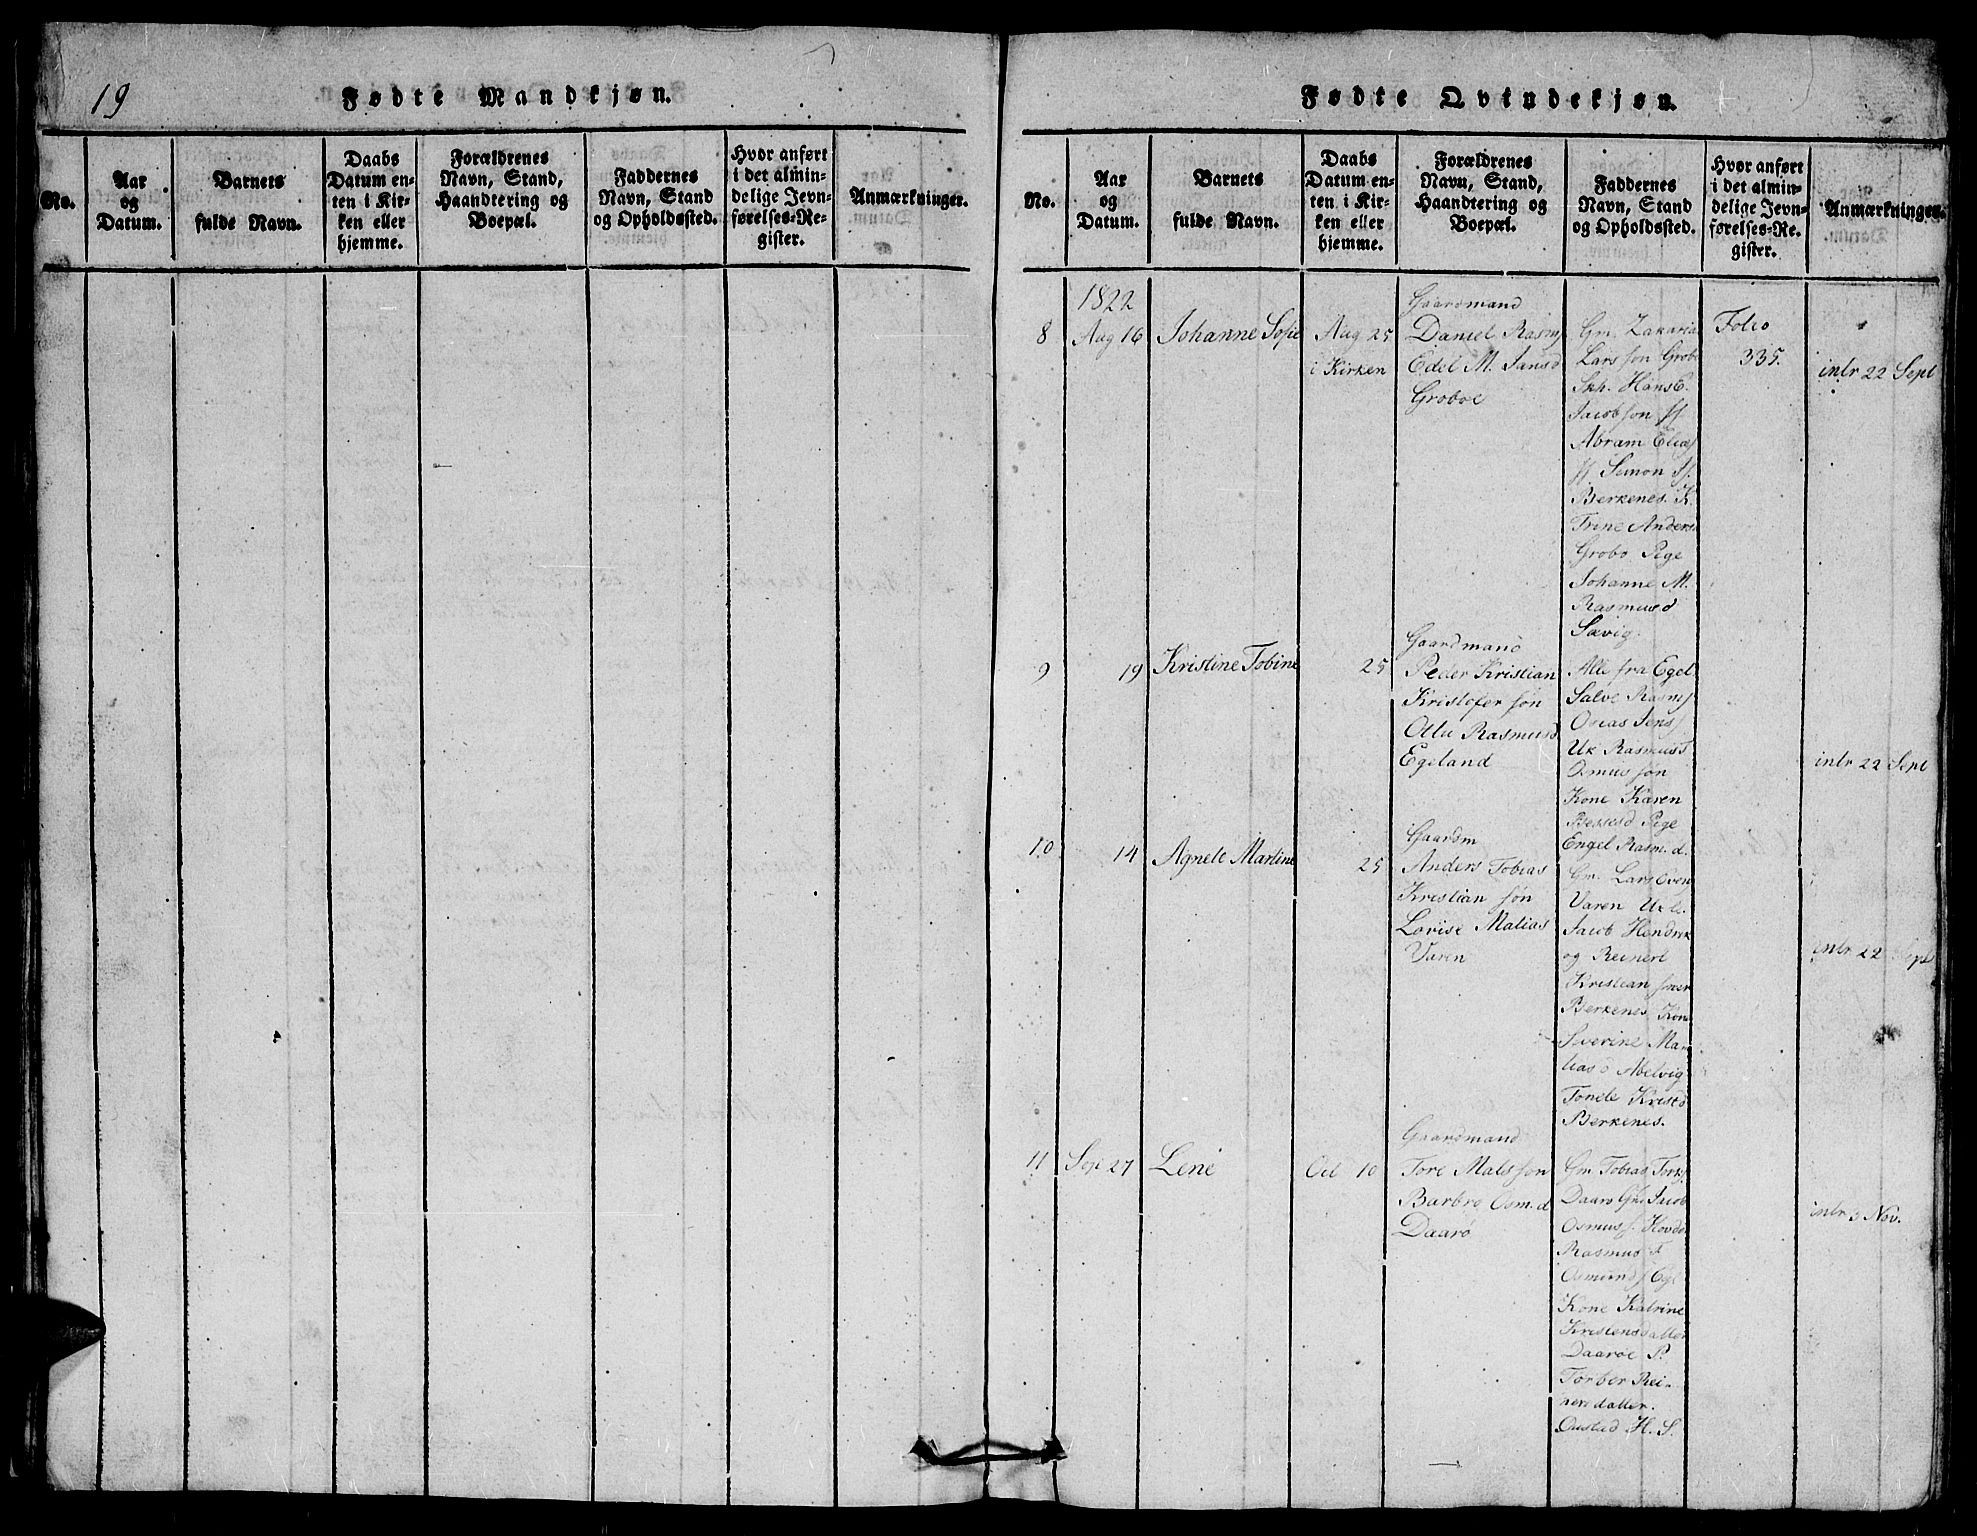 19
Fødte Mandkjøn.
No.
Aar
og
Datum.
Barnets
fulde Navn.
Daabs
Datum en-
ten i Kir-
ken eller
hjemme.
Forældrenes
Navn, Stand,
Haandtering og
Boepæl.
Faddernes
Navn, Stand
og Opholdssted.
Hvor anført
i det almin-
delige Jevn-
førelses-Re-
gister.
Anmærkninger.
Fødte Qvindekjøn.
No.
Aar
og
Datum.
Barnets
fulde Navn.
Daabs
Datum en-
ten i Kir-
ken eller
hjemme.
Forældrenes
Navn, Stand,
Haandtering og
Boepæl.
Faddernes
Navn, Stand
og Opholdssted.
Hvor anført
i det almin-
delige Jevn-
førelses-Re-
gister.
Anmærkninger.
8
1822
Aug 16
Johanne Sofie
Aug 25
i Kirken
Gaardmand
Daniel Rasm
Edel M. Jansd
Groboe
Gm. Zakaria
Lars søn Grobo
Hans E.
Jacob søn
Abram Elias
Simon
Berkenes. K.
Trine Anders
Grobo Pige
Johanne M.
Rasmusd
Sævig.
Folio
335.
intr 22 Sept
9
19
Kristine Tobine
25
Gaardmand
Peder Kristian
Kristofer søn
Rasmusd
Egeland
Alle fra Egel.
Salve Rasm
Osias Jens
Uk Rasmus T
Osmus søn
Kone Karen
Pige
Engel Rasm. d.
intr 22 Sept
10
14
Agnete Martine
25
Gaardm
Anders Tobias
Kristian søn
Lovise Matias
Varen
Gm. Lars Even
Varen
Jacob Hendrek
og Reinert
Kristian søner
Berkenes, Kone
Severine Ma-
tias d Abelvig
Tonete Kristd
Berkenes.
intr 22 Sept
11
Sept 27
Lene
Oct 10
Gaardmand
Tore Mats søn
Barbro Osm. d
Daarø
Gm Tobias
Daarø Jacob
Osmus s.
Rasmus T
Osmunds Egl
Kone Katrine
Kristensdatter
Daarøe P.
Torber Rei-
nersdatter.
H. S.
intr 3 Nov.